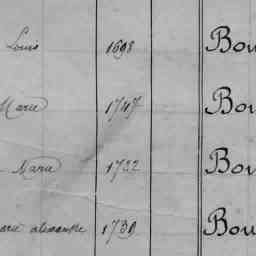 Louis 1698 Bou
Marie 1747 Bou
Marie 1722 Bou
Marie alexandre 1739 Bou